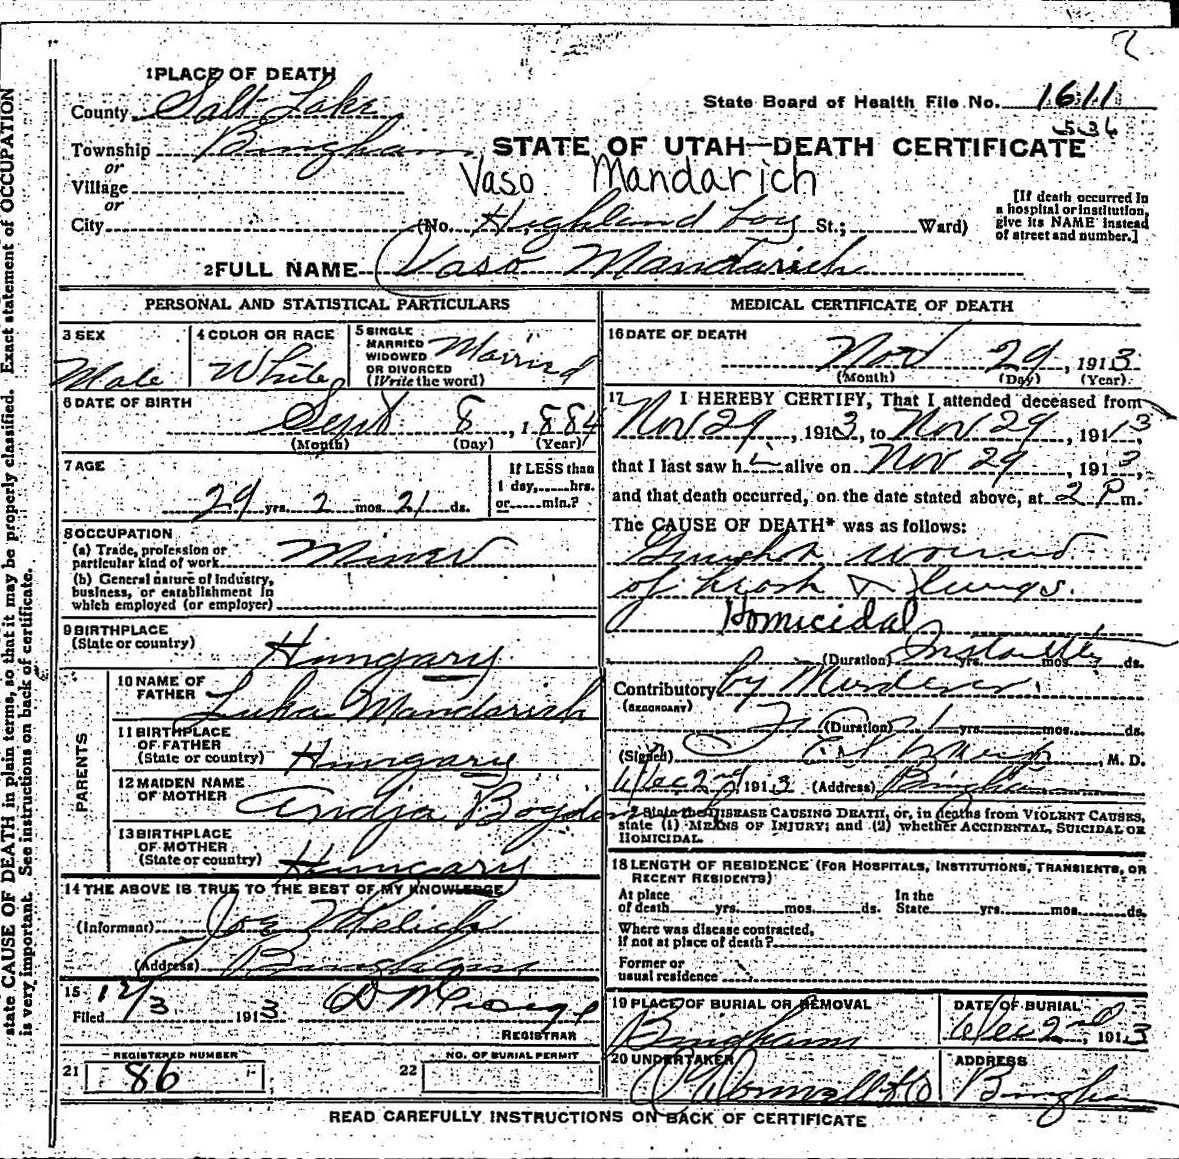 1 PLACE OF DEATH
County Salt Lake
State Board of Health File No. 1611
536
Township Bingham
or
Village
or
City
STATE OF UTAH—DEATH CERTIFICATE
Vaso Mandarich
(No. Highland Boy St.; Ward)
[If death occurred in
a hospital or institution,
give its NAME instead
of street and number.]
2 FULL NAME Vaso Mandarich
PERSONAL AND STATISTICAL PARTICULARS
3 SEX
Male
4 COLOR OR RACE
White
5 SINGLE
MARRIED
WIDOWED
OR DIVORCED
(Write the word)
Married
6 DATE OF BIRTH
Sept 8, 1884
(Month) (Day) (Year)
7 AGE
29 yrs. 2 mos. 21 ds.
If LESS than
1 day, hrs.
or min.?
8 OCCUPATION
(a) Trade, profession or
particular kind of work Miner
(b) General nature of industry,
business, or establishment in
which employed (or employer)
9 BIRTHPLACE
(State or country)
Hungary
PARENTS
10 NAME OF
FATHER
Luka Mandarich
11 BIRTHPLACE
OF FATHER
(State or country)
Hungary
12 MAIDEN NAME
OF MOTHER
Andja
13 BIRTHPLACE
OF MOTHER
(State or country)
Hungary
14 THE ABOVE IS TRUE TO THE BEST OF MY KNOWLEDGE
(Informant) Joe Melich
(Address) Bingham
15
Filed 12/3 1913
REGISTRAR
REGISTERED NUMBER
21 86
NO. OF BURIAL PERMIT
22
MEDICAL CERTIFICATE OF DEATH
16 DATE OF DEATH
Nov 29, 1913
(Month) (Day) (Year)
17 I HEREBY CERTIFY, That I attended deceased from
Nov 29, 1913, to Nov 29, 1913,
that I last saw h i alive on Nov 29, 1913,
and that death occurred, on the date stated above, at 2 P m.
The CAUSE OF DEATH* was as follows:
Gunshot wound
of & lungs.
Homicidal
(Duration) yrs. mos. ds.
Contributory by Murderer.
(SECONDARY)
(Duration) yrs. mos. ds.
(Signed) , M. D.
Dec 2nd 1913 (Address) Bingham
* State the DISEASE CAUSING DEATH, or, in deaths from VIOLENT CAUSES,
state (1) MEANS OF INJURY; and (2) whether ACCIDENTAL, SUICIDAL OR
HOMICIDAL.
18 LENGTH OF RESIDENCE (FOR HOSPITALS, INSTITUTIONS, TRANSIENTS, OR
RECENT RESIDENTS)
At place
of death yrs. mos. ds.
In the
State yrs. mos. ds.
Where was disease contracted,
if not at place of death?
Former or
usual residence
19 PLACE OF BURIAL OR REMOVAL
Bingham
DATE OF BURIAL
Dec 2nd, 1913
20 UNDERTAKER
O'Donnell & Co
ADDRESS
Bingham
READ CAREFULLY INSTRUCTIONS ON BACK OF CERTIFICATE
state CAUSE OF DEATH in plain terms, so that it may be properly classified. Exact statement of OCCUPATION
is very important. See instructions on back of certificate.